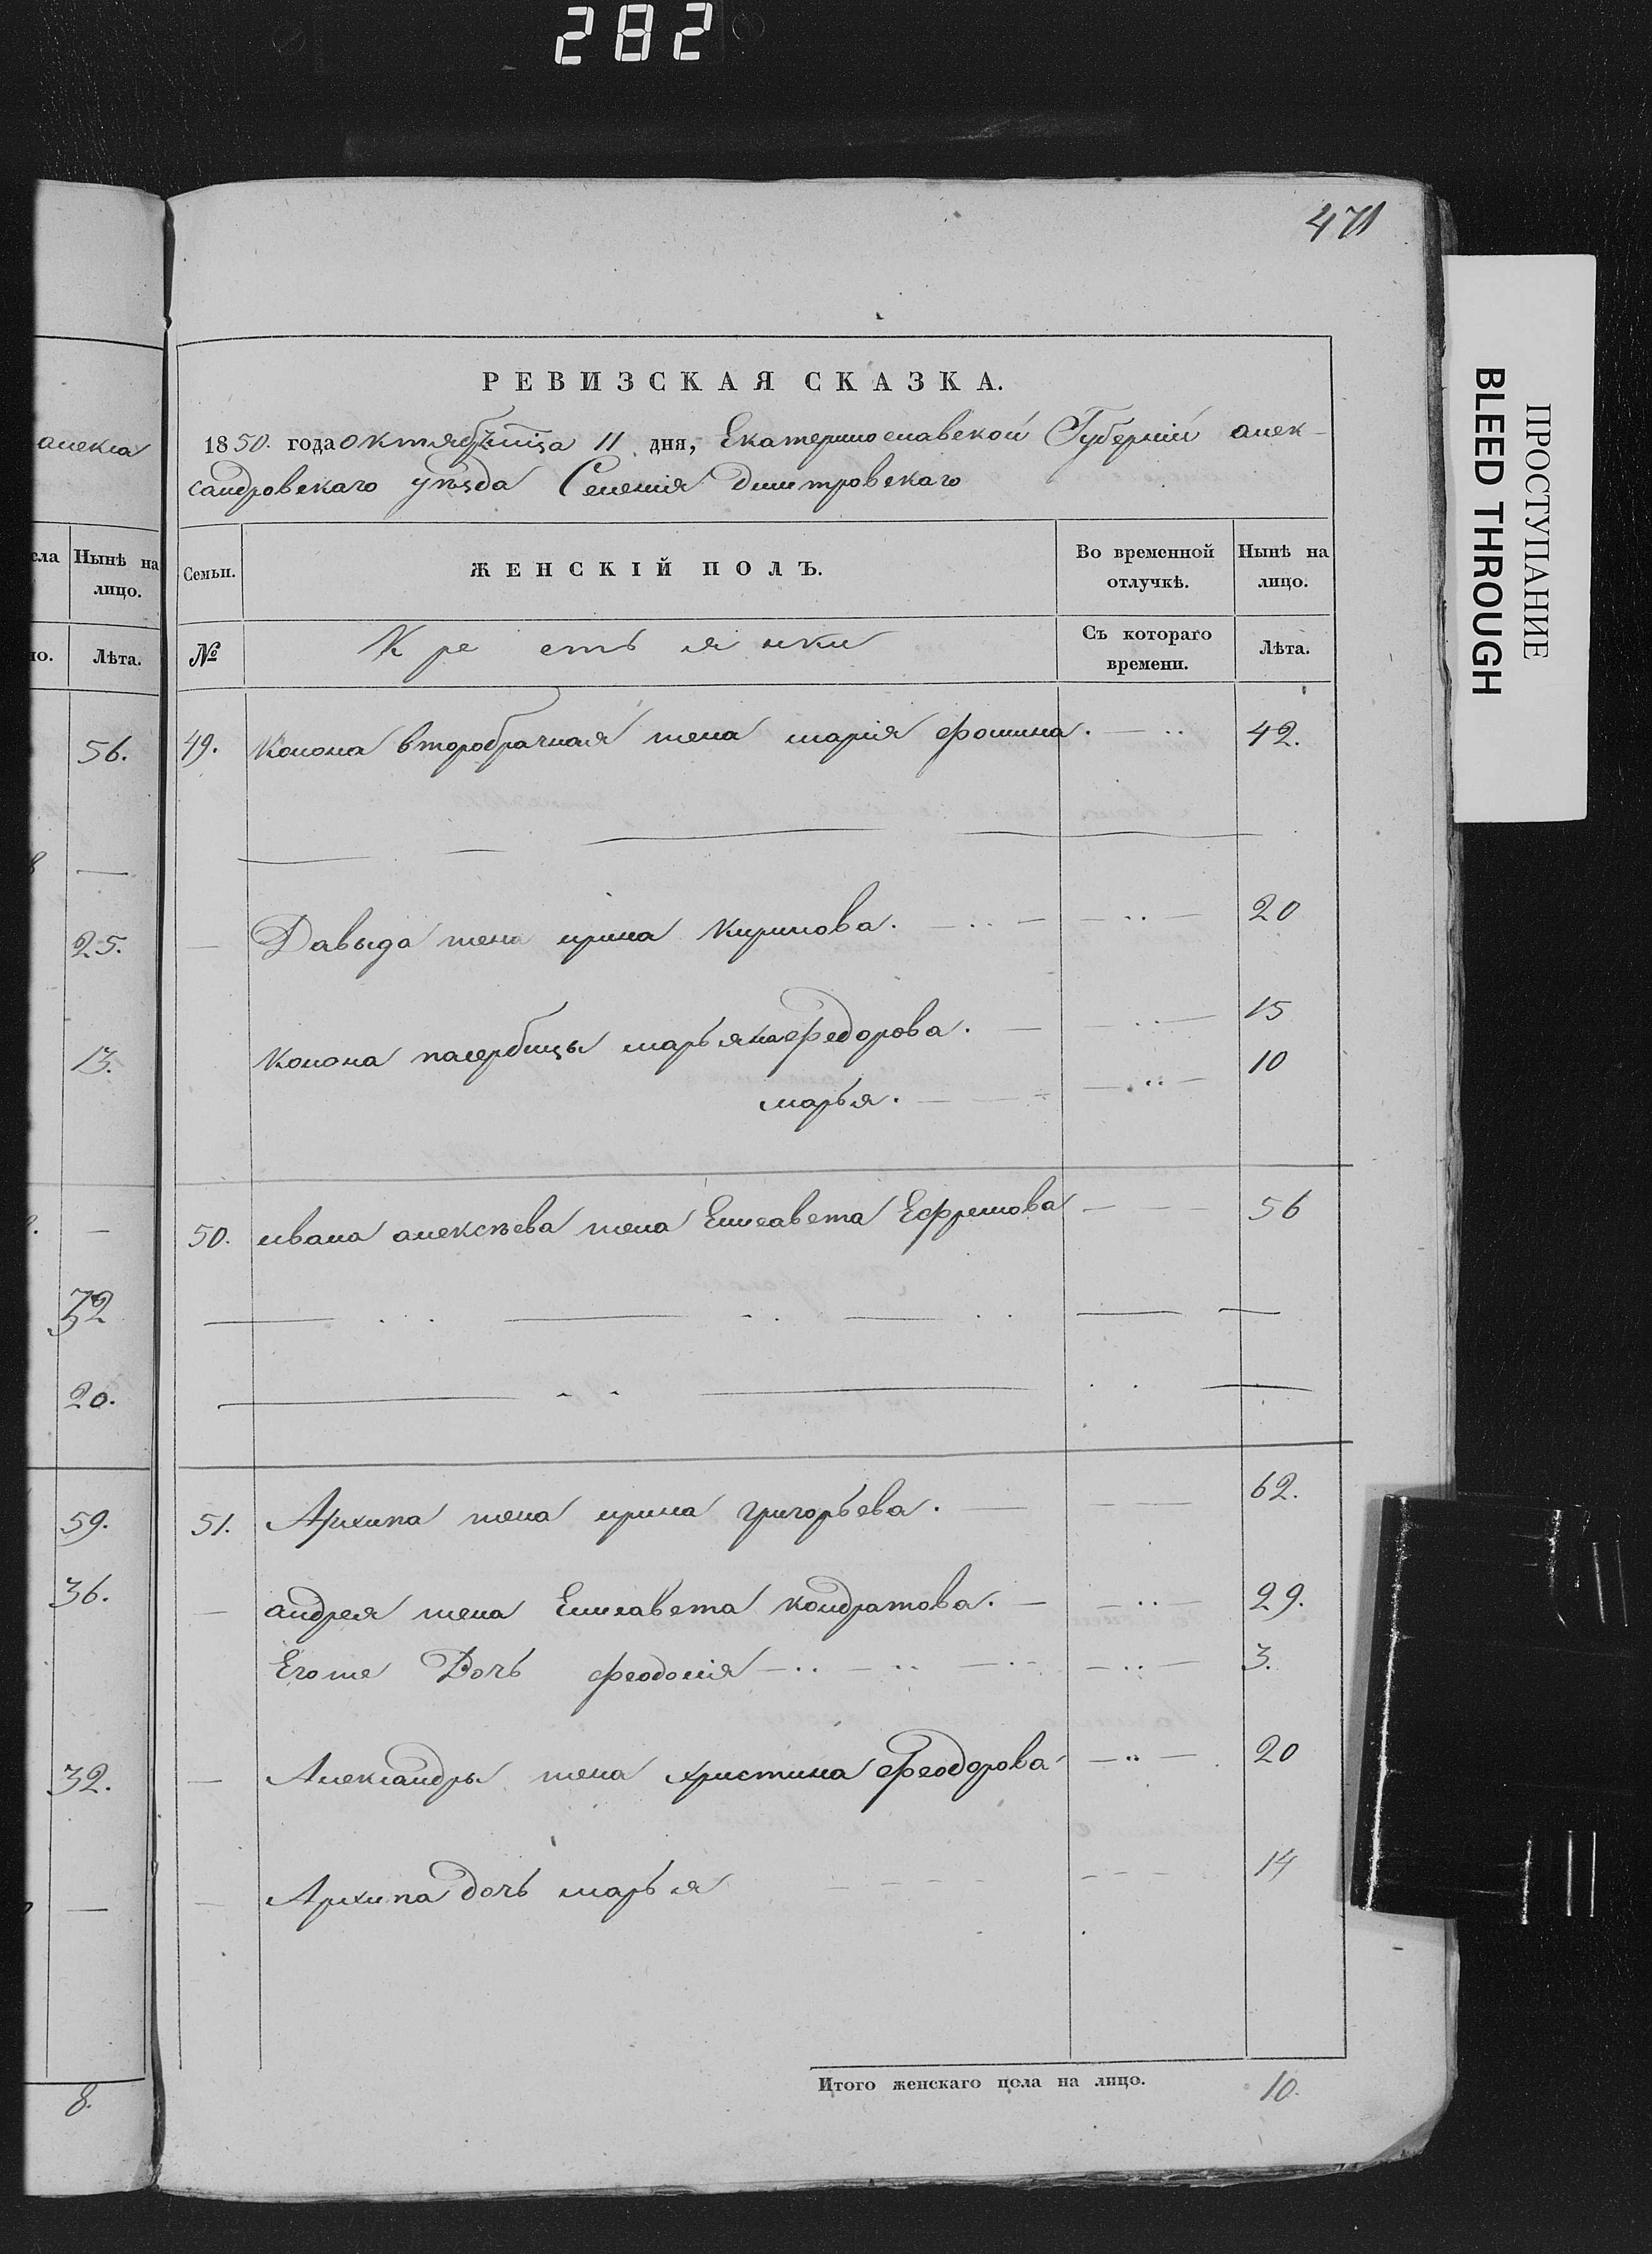 282
471
алекса
РЕВИЗСКАЯ СКАЗКА.
1850. года октября мца 11 дня, Екатеринославской Губерніи алек-
сандровскаго уѣзда Селенія Дмитровскаго
сла Нынѣ на лицо.
Семьи. ЖЕНСКІЙ ПОЛЪ. Во временной отлучкѣ. Нынѣ на лицо.
но. Лѣта.
№ Крестьянки Съ котораго времени. Лѣта.
56.
49. Конона второбрачная жена марія фомина. 42.
25.
Давыда жена ирина Кирилова. 20
13.
Конона пасербицы марьяна Федорова. 15
марья. 10
50. ивана алексѣева жена Елисавета Ефремова 56
32
20.
59.
51. Архипа жена ирина григорьева. 62.
36.
андрея жена Елисавета кондратова. 29.
Егоже Дочь феодосія 3.
32.
Александры жена христина Феодорова 20
Архипа дочь марья 14
8.
Итого женскаго пола на лицо. 10.
ПРОСТУПАНИЕ
BLEED THROUGH